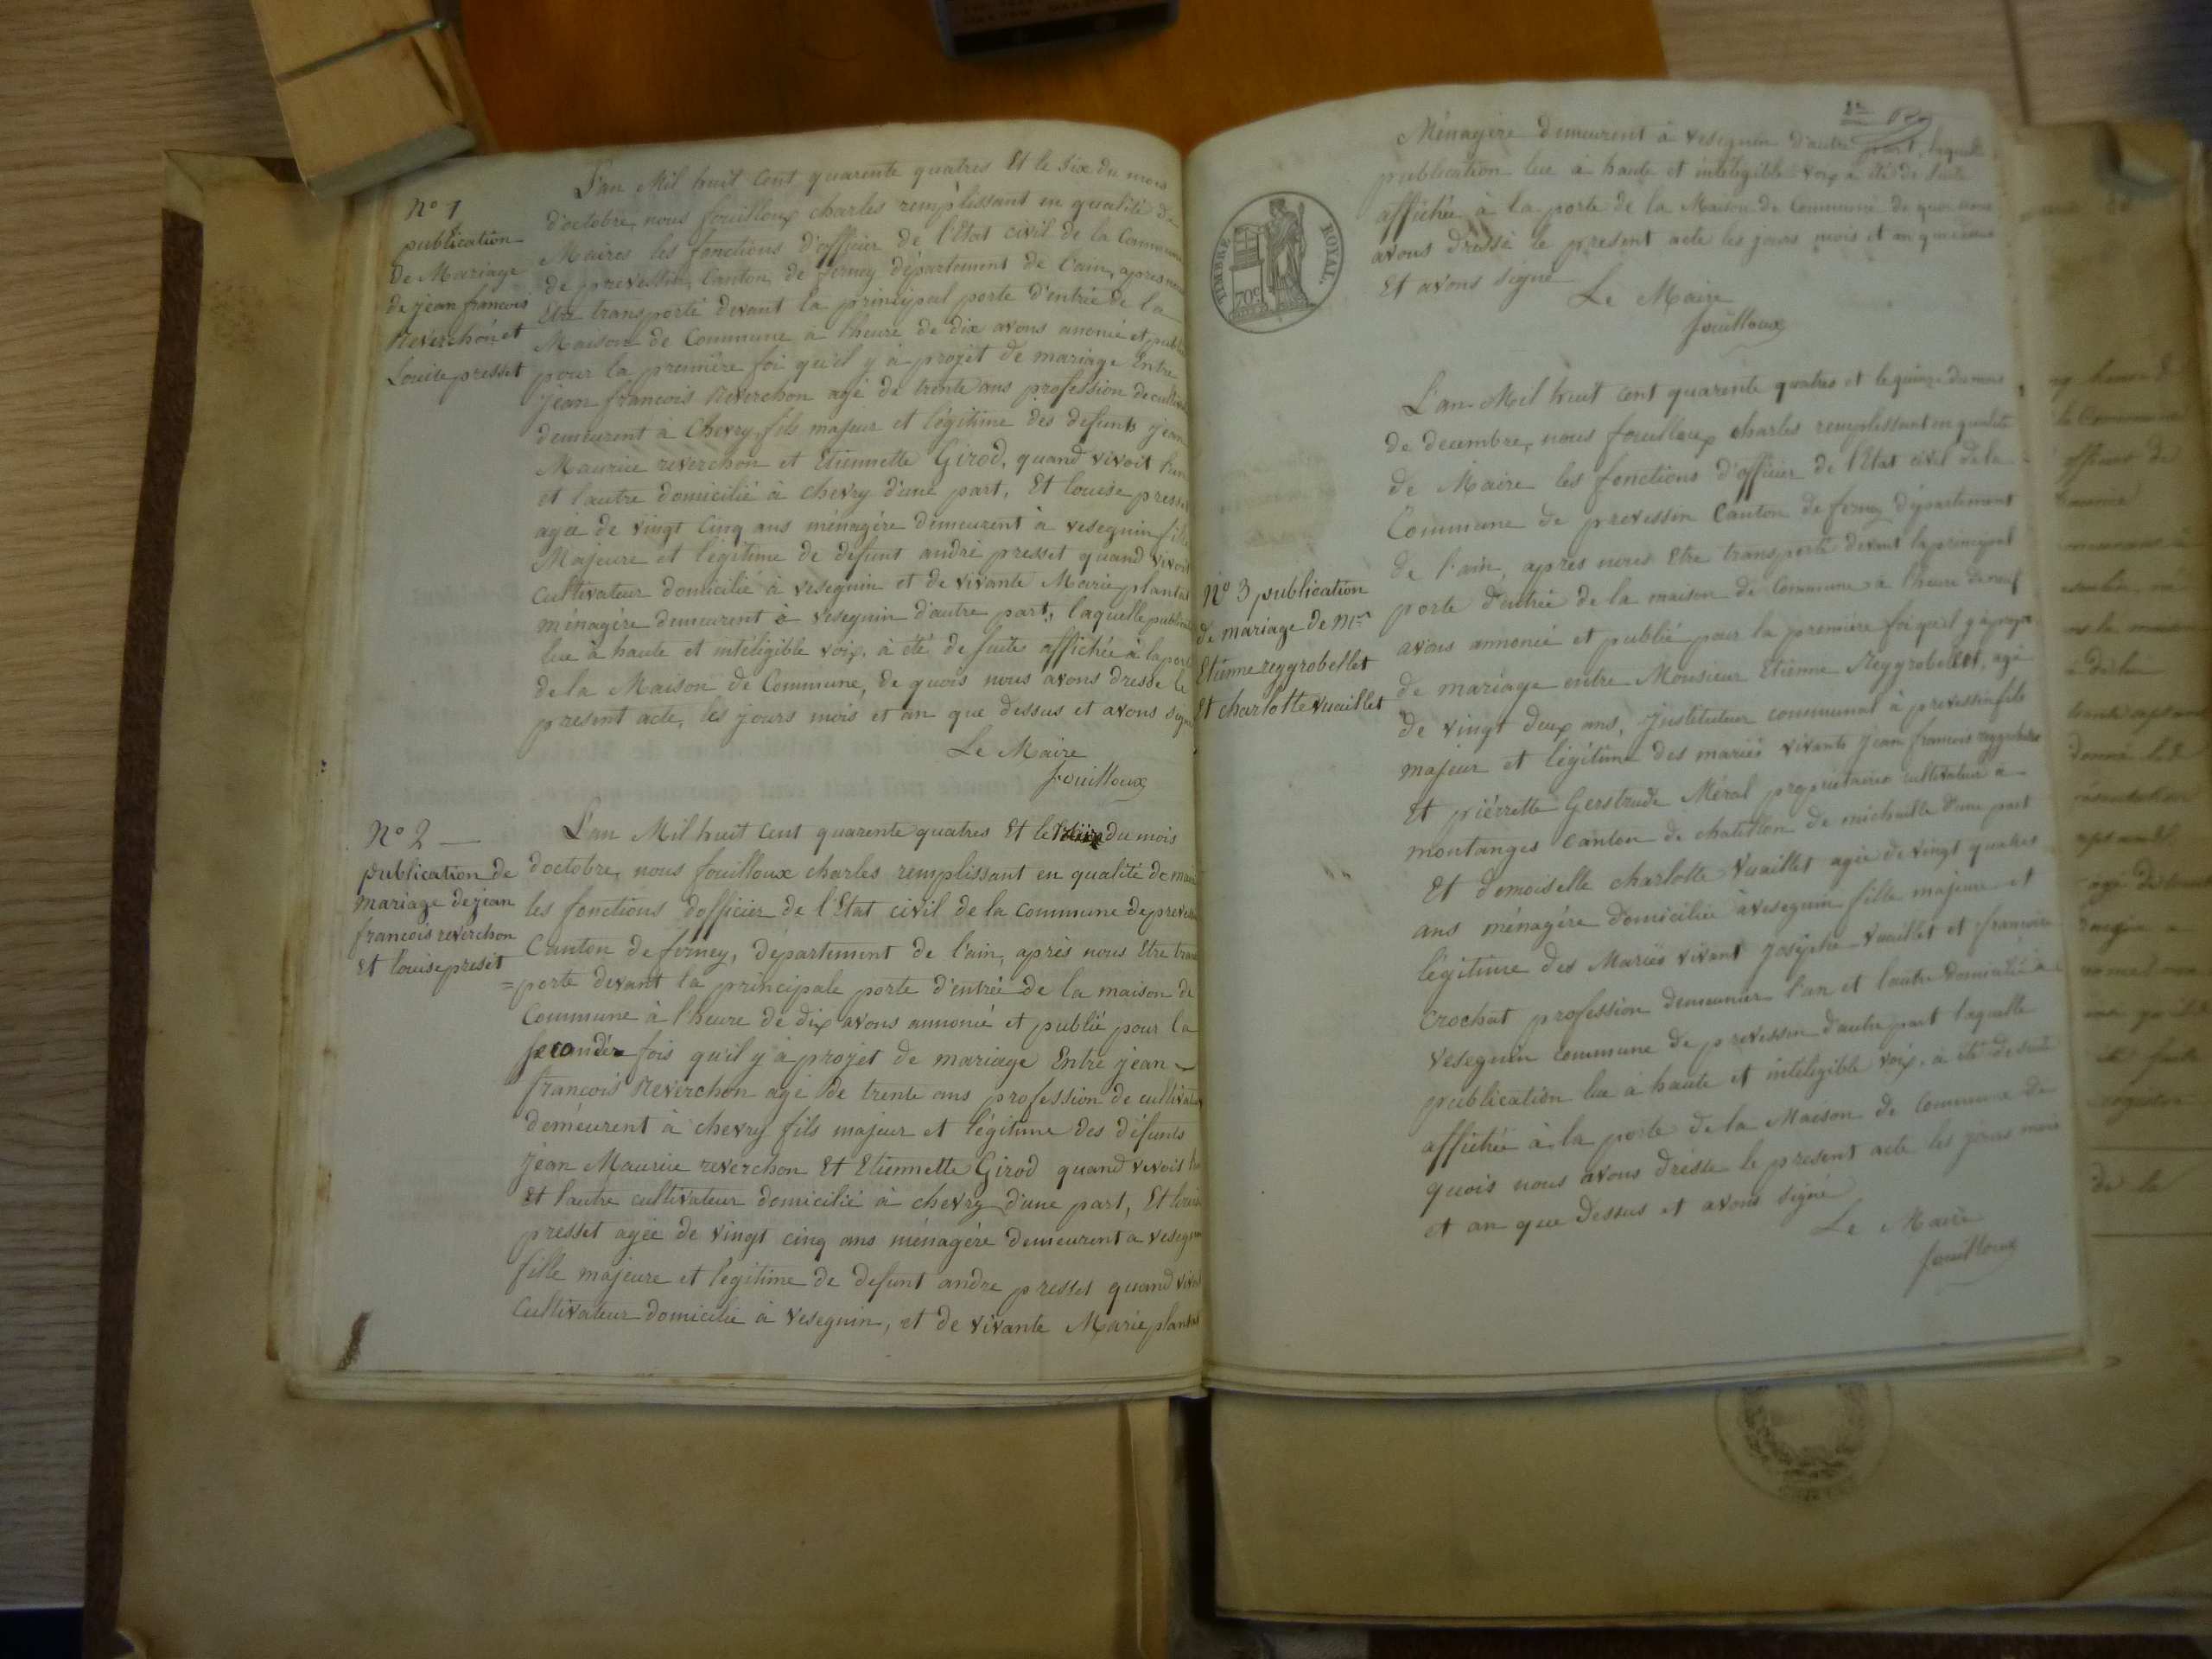 N° 1
publication
de Mariage
de jean francois
Reverchon et
Louise presset
L'an Mil huit Cent quarente quatres Et le Six du mois
d'octobre, nous fouilloux charles remplissant en qualité de
Maires les fonctions d'officier de l'Etat civil de la Commune
de prevessin, Canton de ferney département de l'ain, apres nous
Etre transporté devant la principal porte d'entrée de la
Maison de Commune à l'heure de dix avons anoncé et publié
pour la première foi qu'il y à projet de mariage Entre
jean francois Reverchon agé de trente ans profession de cultiva
demeurent a Chevry, fils majeur et légitime des defunts jean
Maurice reverchon et Etiennette Girod, quand vivoit l'un
et l'autre domicilié à chevry d'une part, Et louise presset
agée de vingt Cinq ans ménagére demeurent à vesegnin fille
Majeure et légitime de defunt andré presset quand vivoit
Cultivateur domicilié à vesegnin et de vivante Marie plantat
ménagére demeurent à vesegnin d'autre part, laquelle publica
lue à haute et intéligible voix, à été de suites affichée à la porte
de la Maison de Commune, de quois nous avons dressé le
present acte, les jours mois et an que dessus et avons signé
Le Maire
fouilloux
N° 2
publication de
mariage de jean
francois reverchon
Et louise preset
L'an Mil huit Cent quarente quatres Et le du mois
d'octobre, nous fouilloux charles remplissant en qualité de mair
les fonctions d'officier de l'Etat civil de la Commune de preve
Canton de ferney, département de l'ain, aprés nous Etre trans
=porte devant la principale porte d'entrée de la maison de
Commune à l'heure de dix avons annoncé et publié pour la
secondér fois qu'il y à projet de mariage Entre jean
francois Reverchon agé de trente ans profession de cultivat
demeurent à chevry fils majeur et légitime des défunts
jean Maurice reverchon Et Etiennette Girod quand vivois l'un
Et l'autre cultivateur domicilié à chevry d'une part, Et louise
presset agée de vingt cinq ans ménagéré demeurent a vesegnin
fille majeure et légitime de defunt andre presset quand vivoit
Cultivateur domicilié à Vesegnin, et de vivante Marie plantat
TIMBRE ROYAL.
70c
Ménagére demeurent à vesegnin d'autre part, laquelle
publication lue à haute et intéligible voix à été de suite
affichée à la porte de la Maison de Commune de quoi nous
avons dressé le present acte les jours mois et an que dessus
Et avons signé
Le Maire
fouilloux
N° 3 publication
de mariage de Mr
Etienne reygrobellet
Et charlotte vuaillet
L'an Mil huit cent quarente quatres et le quinze du mois
de decembre, nous fouilloux charles remplessant en qualité
de Maire les fonctions d'officier de l'Etat civil de la
Commune de prevessin Canton de ferney département
de l'ain, apres nous Etre transporté devant la principal
porte d'entrée de la maison de Commune à l'heure de neuf
avons annoncé et publié pour la première foi qu'il y à projet
de mariage entre Monsieur Etienne Reygrobellet, agé
de vingt deux ans, jnstituteur communal à prevessin fils
majeur et légitime des mariés vivants Jean francois reygrobellet
Et piérrette Gerstrude Méral propriétaires cultivateur à
montanges Canton de chatillon de michaille d'une part
Et demoiselle charlotte Vuaillet agée de vingt quatres
ans ménagére domiciliée à vesegnin fille majeure et
légitime des Mariés vivant joséphe Vuaillet et francoise
Crochat profession demeunier l'un et l'autre domicilié à
vesegnin commune de prevessin d'autre part laquelle
publication lue à haute et intéligible voix, à été de suite
affichée à la porte de la Maison de Commune de
quois nous avons dréssé le present acte les jours mois
et an que dessus et avons signé
Le Maire
fouilloux